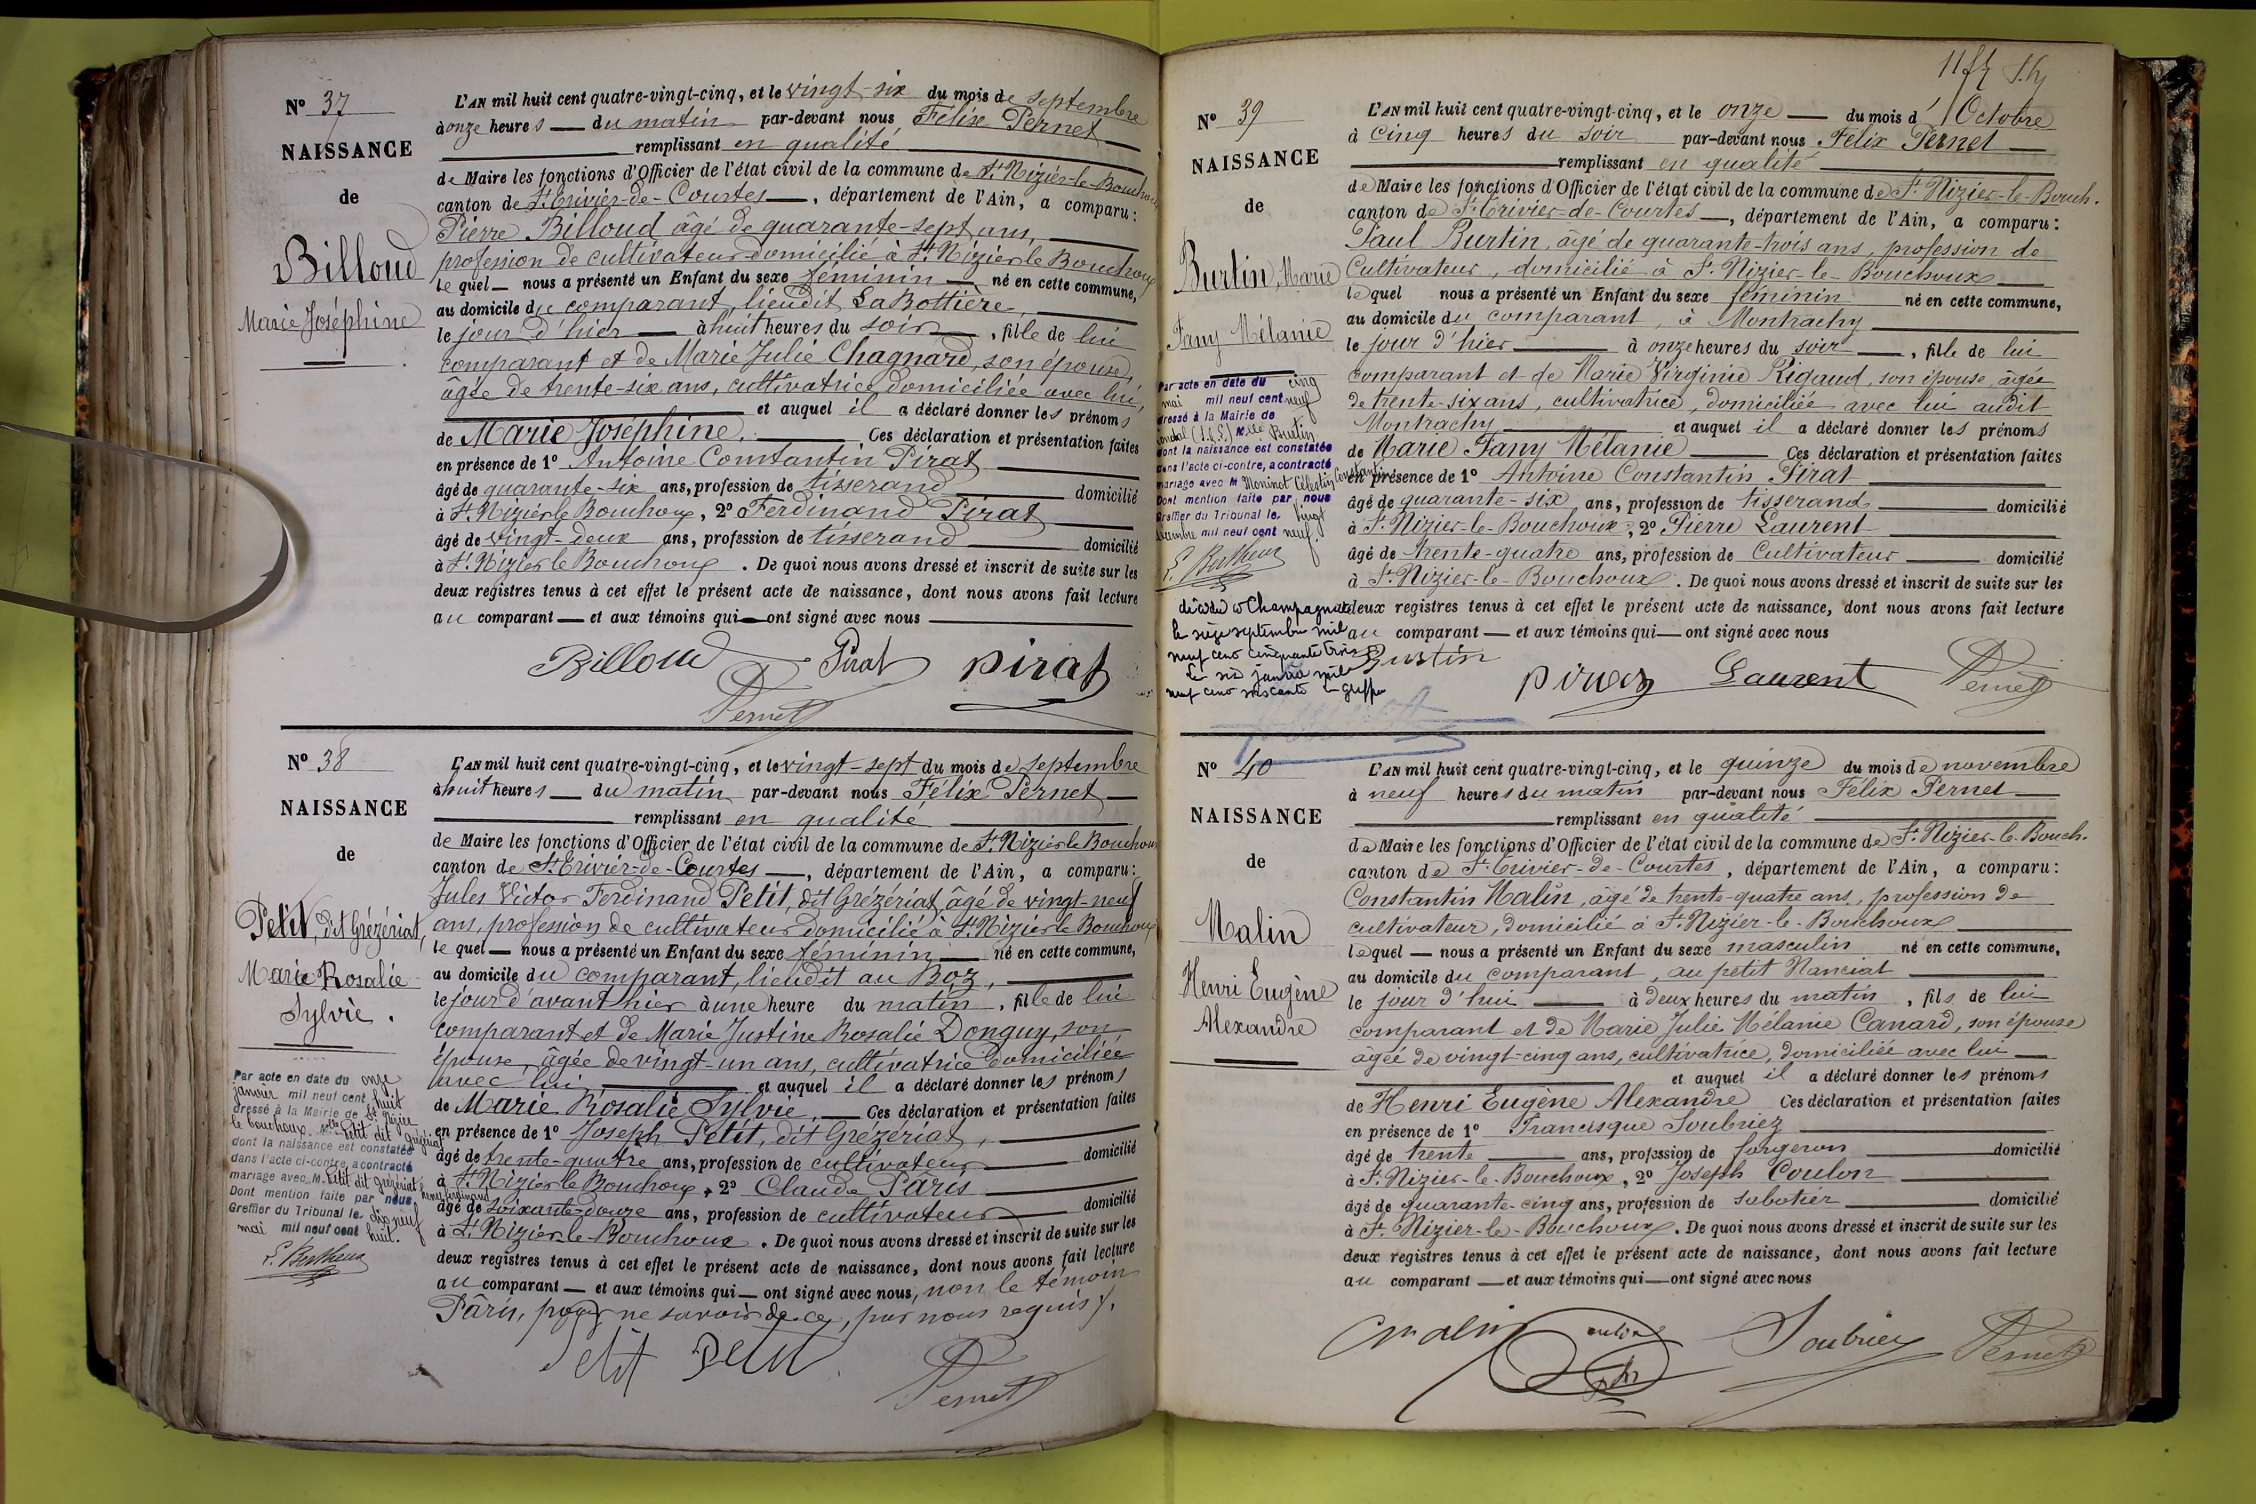 N° 37
NAISSANCE
de
Billoud
Marie Joséphine
L'AN mil huit cent quatre-vingt-cinq, et le vingt-six du mois de septembre
à onze heures du matin par-devant nous Félix Pernet
remplissant en qualité
de Maire les fonctions d'Officier de l'état civil de la commune de St Nizier-le-Bouchoux
canton de St Trivier-de-Courtes, département de l'Ain, a comparu:
Pierre Billoud âgé de quarante-sept ans,
profession de cultivateur domicilié à St Nizier le Bouchoux
lequel nous a présenté un Enfant du sexe féminin né en cette commune,
au domicile du comparant, lieudit La Bottière,
le jour d'hier à huit heures du soir, fille de lui
comparant et de Marie Julie Chagnard, son épouse,
âgée de trente-six ans, cultivatrice domiciliée avec lui,
et auquel il a déclaré donner les prénoms
de Marie Joséphine. Ces déclaration et présentation faites
en présence de 1° Antoine Constantin Pirat
âgé de quarante-six ans, profession de tisserand domicilié
à St Nizier le Bouchoux, 2° Ferdinand Pirat
âgé de vingt-deux ans, profession de tisserand domicilié
à St Nizier le Bouchoux. De quoi nous avons dressé et inscrit de suite sur les
deux registres tenus à cet effet le présent acte de naissance, dont nous avons fait lecture
au comparant et aux témoins qui ont signé avec nous
Billoud Pirat pirat
Pernet
N° 38
NAISSANCE
de
Petit, dit Grézériat,
Marie Rosalie
Sylvie.
Par acte en date du onze
janvier mil neuf cent huit
dressé à la Mairie de St Nizier
le bouchoux, Mlle Petit dit Grézériat
dont la naissance est constatée
dans l'acte ci-contre, a contracté
mariage avec M. Petit dit Grézériat
henry ferdinand
Dont mention faite par nous,
Greffier du Tribunal le dix neuf
mai mil neuf cent huit.
L'AN mil huit cent quatre-vingt-cinq, et le vingt-sept du mois de septembre
à huit heures du matin par-devant nous Félix Pernet
remplissant en qualité
de Maire les fonctions d'Officier de l'état civil de la commune de St Nizier le Bouchoux
canton de St Trivier-de-Courtes, département de l'Ain, a comparu:
Jules Victor Ferdinand Petit, dit Grézériat, âgé de vingt-neuf
ans, profession de cultivateur domicilié à St Nizier le Bouchoux
lequel nous a présenté un Enfant du sexe féminin né en cette commune,
au domicile du comparant, lieudit au Boz,
le jour d'avant hier à une heure du matin, fille de lui
comparant et de Marie Justine Rosalie Donguy, son
épouse, âgée de vingt-un ans, cultivatrice domiciliée
avec lui, et auquel il a déclaré donner les prénoms
de Marie Rosalie Sylvie, Ces déclaration et présentation faites
en présence de 1° Joseph Petit, dit Grézériat,
âgé de trente-quatre ans, profession de cultivateur domicilié
à St Nizier le Bouchoux, 2° Claude Pâris
âgé de soixante-douze ans, profession de cultivateur domicilié
à St Nizier-le-Bouchoux. De quoi nous avons dressé et inscrit de suite sur les
deux registres tenus à cet effet le présent acte de naissance, dont nous avons fait lecture
au comparant et aux témoins qui ont signé avec nous, non le témoin
Pâris, pour ne savoir de ce, par nous requis.
Petit Petit
Pernet
N° 39
NAISSANCE
de
Burtin, Marie
Fany Mélanie
Par acte en date du cinq
mai mil neuf cent neuf
dressé à la Mairie de
Mlle Burtin
dont la naissance est constatée
dans l'acte ci-contre, a contracté
mariage avec M Moninot Célestin Constantin
Dont mention faite par nous
Greffier du Tribunal le vingt
mil neuf cent neuf.
décédée à Champagnat
le seize septembre mil
neuf cent cinquante trois
Le six janvier mil
neuf cent soixante Le greffier
L'AN mil huit cent quatre-vingt-cinq, et le onze du mois d'Octobre
à cinq heures du soir par-devant nous Félix Pernet
remplissant en qualité
de Maire les fonctions d'Officier de l'état civil de la commune de St Nizier-le-Bouch.
canton de St Trivier-de-Courtes, département de l'Ain, a comparu:
Paul Burtin, âgé de quarante-trois ans, profession de
Cultivateur, domicilié à St Nizier-le-Bouchoux
lequel nous a présenté un Enfant du sexe féminin né en cette commune,
au domicile du comparant, à Montrachy
le jour d'hier à onze heures du soir, fille de lui
comparant et de Marie Virginie Rigaud, son épouse, âgée
de trente-six ans, cultivatrice, domiciliée avec lui audit
Montrachy et auquel il a déclaré donner les prénoms
de Marie Fany Mélanie Ces déclaration et présentation faites
en présence de 1° Antoine Constantin Pirat
âgé de quarante-six ans, profession de tisserand domicilié
à St Nizier-le-Bouchoux, 2° Pierre Laurent
âgé de trente-quatre ans, profession de Cultivateur domicilié
à St Nizier-le-Bouchoux. De quoi nous avons dressé et inscrit de suite sur les
deux registres tenus à cet effet le présent acte de naissance, dont nous avons fait lecture
au comparant et aux témoins qui ont signé avec nous
Burtin pirat Laurent Pernet
N° 40
NAISSANCE
de
Malin
Henri Eugène
Alexandre
L'AN mil huit cent quatre-vingt-cinq, et le quinze du mois de novembre
à neuf heures du matin par-devant nous Félix Pernet
remplissant en qualité
de Maire les fonctions d'Officier de l'état civil de la commune de St Nizier-le-Bouch.
canton de St Trivier-de-Courtes, département de l'Ain, a comparu:
Constantin Malin, âgé de trente-quatre ans, profession de
cultivateur, domicilié à St Nizier-le-Bouchoux
lequel nous a présenté un Enfant du sexe masculin né en cette commune,
au domicile du comparant, au petit Nanciat
le jour d'hui à deux heures du matin, fils de lui
comparant et de Marie Julie Mélanie Canard, son épouse
âgée de vingt-cinq ans, cultivatrice, domiciliée avec lui
et auquel il a déclaré donner les prénoms
de Henri Eugène Alexandre Ces déclaration et présentation faites
en présence de 1° Francisque Soubriez
âgé de trente ans, profession de forgeron domicilié
à St Nizier-le-Bouchoux, 2° Joseph Coulon
âgé de quarante-cinq ans, profession de sabotier domicilié
à St Nizier-le-Bouchoux. De quoi nous avons dressé et inscrit de suite sur les
deux registres tenus à cet effet le présent acte de naissance, dont nous avons fait lecture
au comparant et aux témoins qui ont signé avec nous
malin coulon Soubriez Pernet